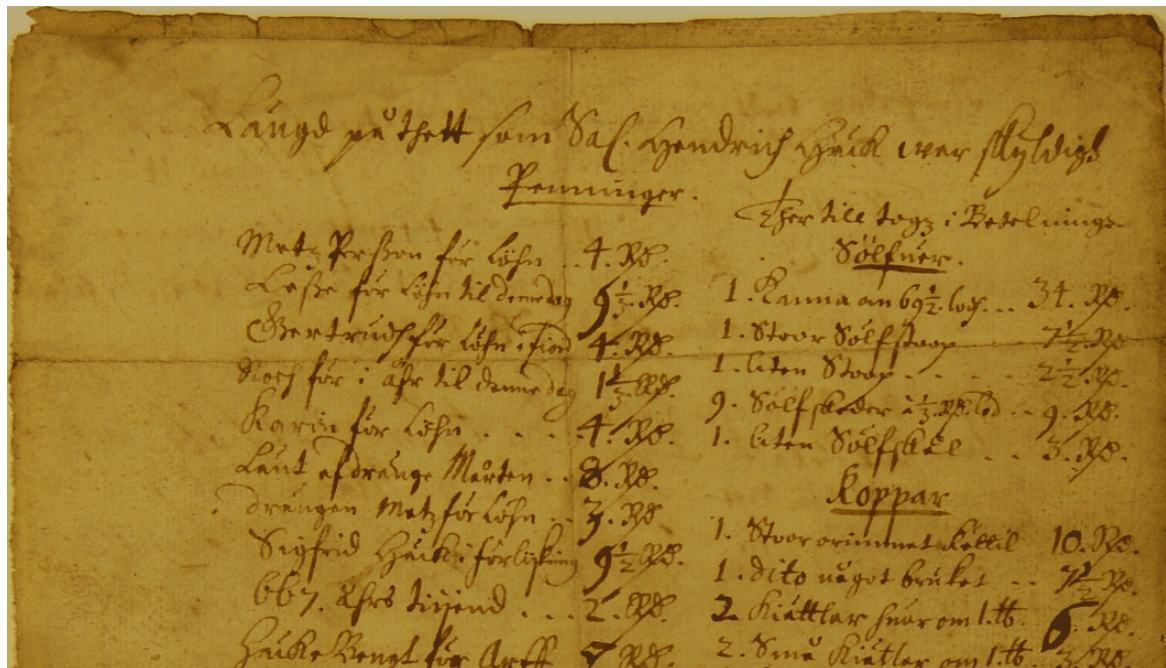 Längd på thett som Sal. Hendrich Häck war skyldigh
Penninger.
Matz Perßon för Löhn .. 4. Rd.
Laße för Löhn til denne dag 9½. Rd.
Gertrudh för Löhn i Fiord 4. Rd.
Noch för i åhr til denne dag 1½. Rd.
Karin för Löhn . . . . 4. Rd.
Lånt af dränge Mårten .. 8. Rd.
drängen Matz för Löhn .. 3. Rd
Sigfrid Häck i förlijkning 9½ Rd.
667. åhrs tijend . . . 2. Rd.
Häcke Bengt för Arff Rd.
Ther till togz i Betalninge
Sölfuer.
1. Kanna om 69½. lod. . . 34. Rd.
1. Stoor Sölfstoop 7½. Rd
1. liten Stoop . . . . 2½. Rd.
9. Sölfskeder à ½. Rd. lod .. 9. Rd.
1. liten Sölfskål . . 3. Rd.
Koppar
1. Stoor orimmat Kättil 10. Rd.
1. dito något bruket .. 7½ Rd.
2. Kiättlar huar om 1. ℔. 6. Rd.
2. Små Kiättlar om 1. ℔. Rd.